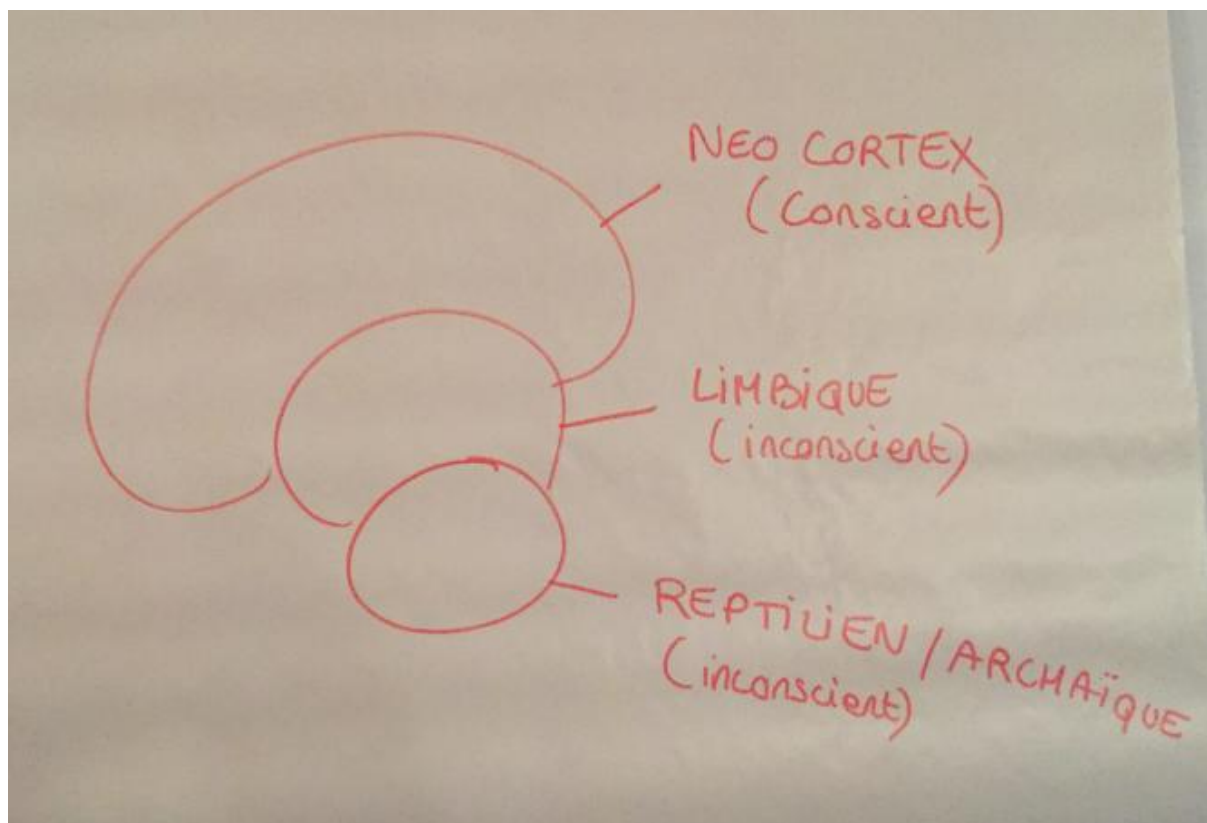 NEO CORTEX
(Conscient)
LiMBiQUE
(inconscient)
REPTiLiEN / ARCHAÏQUE
(inconscient)